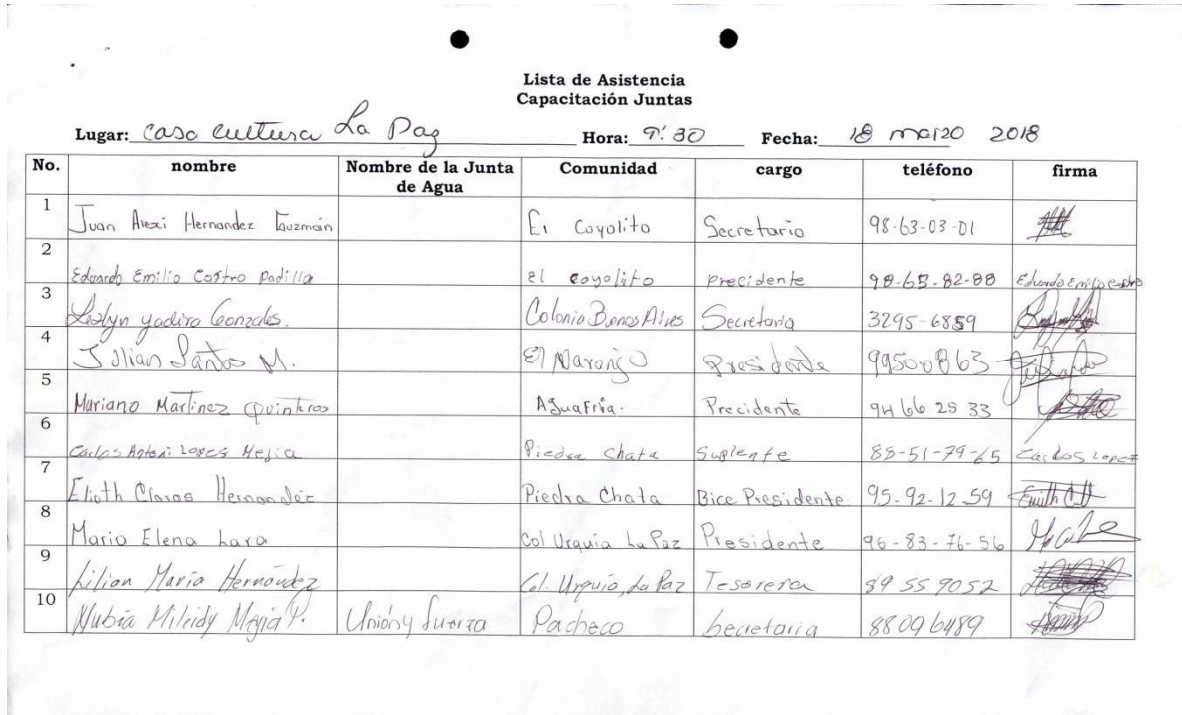 Lista de Asistencia
Capacitación Juntas
Lugar: Casa Cultura La Paz Hora: 9:30 Fecha: 18 marzo 2018
No. nombre Nombre de la Junta de Agua Comunidad cargo teléfono firma
1 Juan Alexi Hernandez Guzmán El Coyolito Secretario 98-63-03-01
2 Eduardo Emilio Castro Padilla el coyolito precidente 98-65-82-88 Eduardo Emilio Castro
3 Leslyn yadira Gonzales. Colonia Buenos Aires Secretaria 3295-6859
4 Julian Santos M. El Naranjo Presidente 99500863
5 Mariano Martinez Quinteros Aguafria. Precidente 94 66 25 33
6 Carlos Antoni Lopes Mejia Piedra chata Suplente 88-51-79-65 Carlos Lopez
7 Elioth Claros Hernandéz Piedra Chata Bice Presidente 95-92-12-59
8 Maria Elena Lara Col Urquia La Paz Presidente 96-83-76-56
9 Lilian María Hernández Col. Urquia, La Paz Tesorera 89 55 9052
10 Nubia Mileidy Mejia P. Unión y fuerza Pacheco Secretaria 88096489